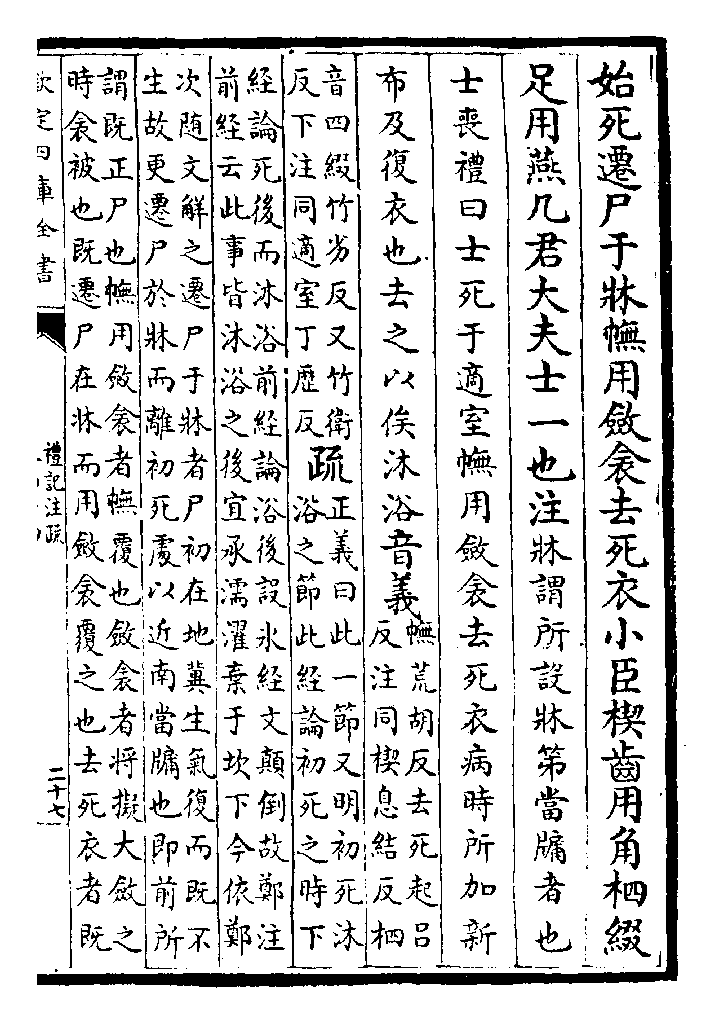 始死遷尸于牀幠用斂衾去死衣小臣楔齒用角柶綴
足用燕几君大夫士一也注牀謂所設牀笫當牖者也
士喪禮曰士死于適室幠用斂衾去死衣病時所加新
布及復衣也去之以俟沐浴音義
幠荒胡反去死起吕
反注同楔息結反柶
音四綴竹劣反又竹衛
反下注同適室丁歷反
疏
正義曰此一節又明初死沐
浴之節此經論初死之時下
經論死後而沐浴前經論浴後設冰經文顛倒故鄭注
前經云此事皆沐浴之後宜承濡濯棄于坎下今依鄭
次隨文解之遷尸于牀者尸初在地冀生氣復而既不
生故更遷尸於牀而離初死處以近南當牖也即前所
謂既正尸也幠用斂衾者幠覆也斂衾者將擬大斂之
時衾被也既遷尸在牀而用斂衾覆之也去死衣者既
欽定四庫全書
禮記注疏
二十七